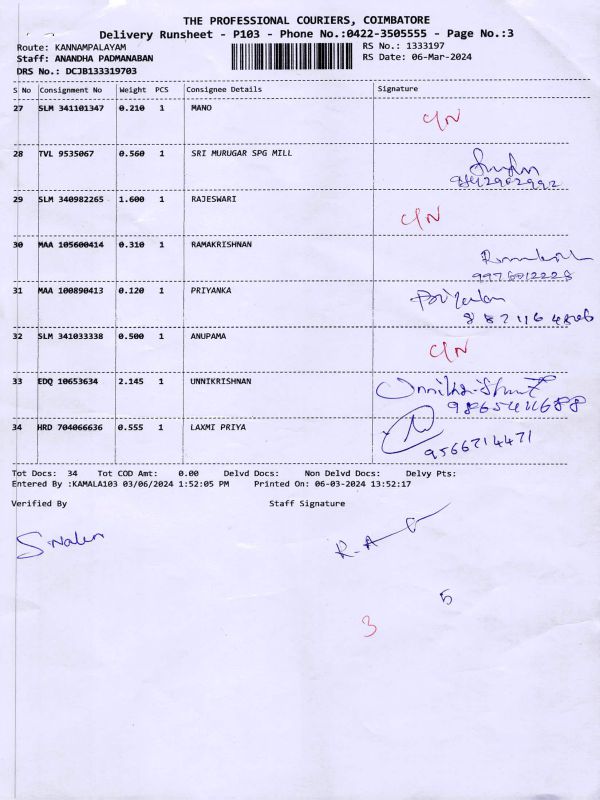 THE PROFESSIONAL COURIERS, COIMBATORE
Delivery Runsheet - P103 - Phone No.:0422-3505555 - Page No.:3
Route: KANNAMPALAYAM RS No.: 1333197
Staff: ANANDHA PADMANABAN RS Date: 06-Mar-2024
DRS No.: DCJB133319703
S No Consignment No Weight PCS Consignee Details Signature
27 SLM 341101347 0.210 1 MANO C/N
28 TVL 9535067 0.560 1 SRI MURUGAR SPG MILL
29 SLM 340982265 1.600 1 RAJESWARI C/N
30 MAA 105600414 0.310 1 RAMAKRISHNAN
31 MAA 100890413 0.120 1 PRIYANKA
32 SLM 341033338 0.500 1 ANUPAMA C/N
33 EDQ 10653634 2.145 1 UNNIKRISHNAN
34 HRD 704066636 0.555 1 LAXMI PRIYA
9566714471
Tot Docs: 34 Tot COD Amt: 0.00 Delvd Docs: Non Delvd Docs: Delvy Pts:
Entered By :KAMALA103 03/06/2024 1:52:05 PM Printed On: 06-03-2024 13:52:17
Verified By Staff Signature
5
3